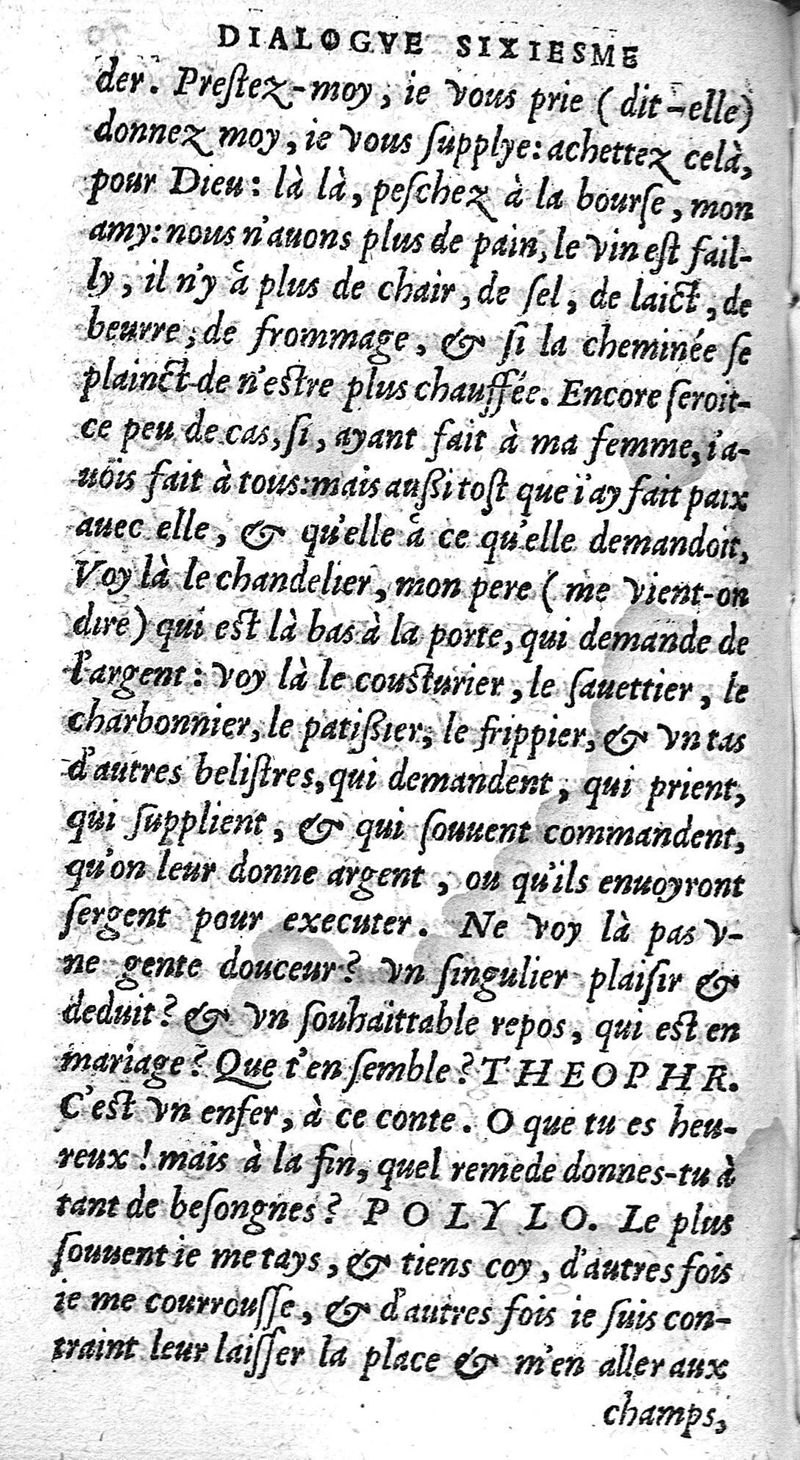 DIALOGVE SIXIESME
der. Preſtez-moy, ie vous prie (dit-elle)
donnez moy, ie vous ſupplye: achettez celà,
pour Dieu: là là, peſchez à la bourſe, mon
amy: nous n'auons plus de pain, le vin eſt fail-
ly, il n'y à plus de chair, de ſel, de laict, de
beurre, de frommage, & ſi la cheminée ſe
plainct de n'eſtre plus chauffée. Encore ſeroit-
ce peu de cas, ſi, ayant fait à ma femme, i'a-
uois fait à tous: mais außi toſt que i'ay fait paix
auec elle, & qu'elle à ce qu'elle demandoit,
Voy là le chandelier, mon pere (me vient-on
dire) qui eſt là bas à la porte, qui demande de
l'argent: voy là le couſturier, le ſauettier, le
charbonnier, le patißier, le frippier, & vn tas
d'autres beliſtres, qui demandent, qui prient,
qui ſupplient, & qui ſouuent commandent,
qu'on leur donne argent, ou qu'ils enuoyront
ſergent pour executer. Ne voy là pas v-
ne gente douceur? vn ſingulier plaiſir &
deduit? & vn ſouhaïttable repos, qui eſt en
mariage? Que t'en ſemble? THEOPHR.
C'eſt vn enfer, à ce conte. O que tu es heu-
reux! mais à la fin, quel remede donnes-tu à
tant de beſongnes? POLYLO. Le plus
ſouuent ie me tays, & tiens coy, d'autres fois
ie me courrouſſe, & d'autres fois ie ſuis con-
traint leur laiſſer la place & m'en aller aux
champs,